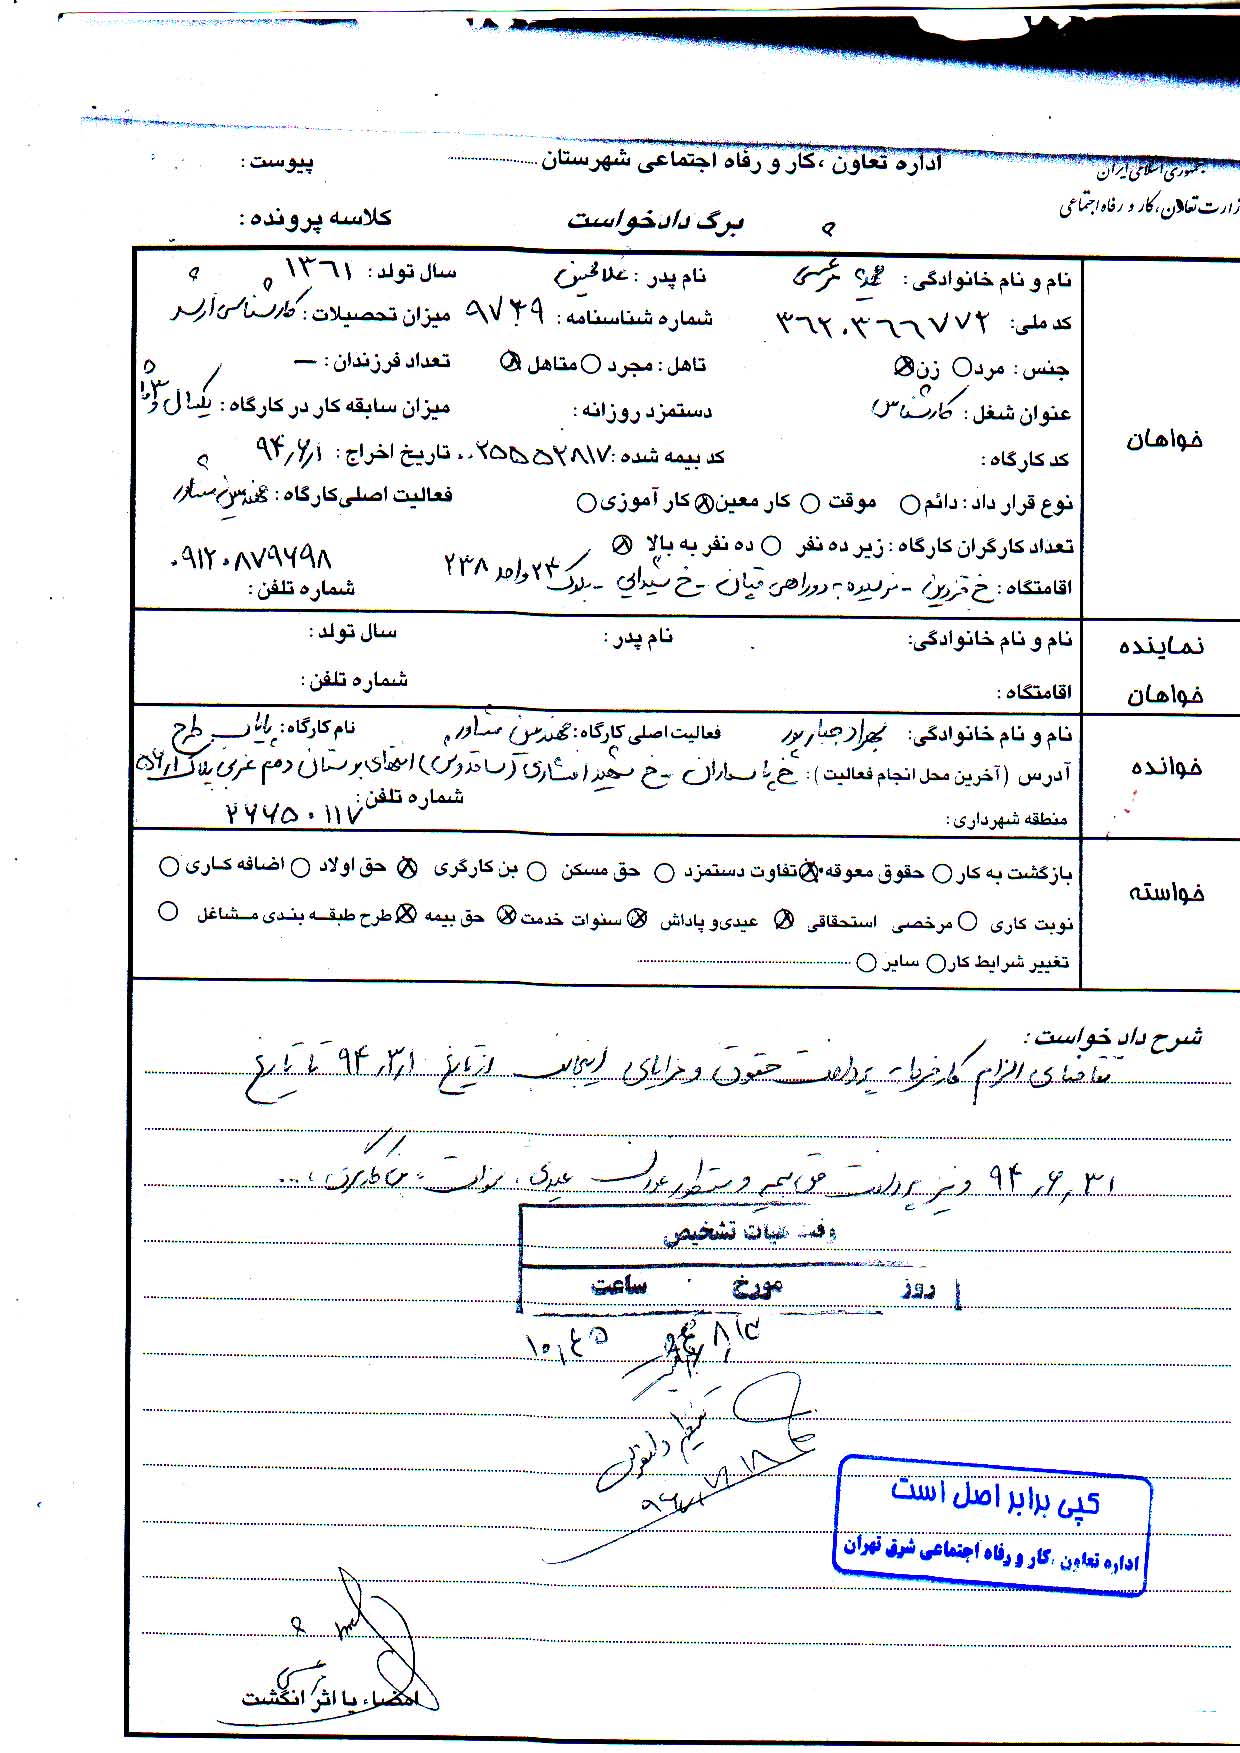 جمهوری اسلامی ایران
وزارت تعاون، کار و رفاه اجتماعی
اداره تعاون ،کار و رفاه اجتماعی شهرستان
پیوست :
برگ دادخواست
کلاسه پرونده :
خواهان
نام و نام خانوادگی: نام پدر : غلامحسین سال تولد: ۱۳۶۱
کد ملی: ۳۶۲۰۳۶۶۷۷۲ شماره شناسنامه: ۹۷۴۹ میزان تحصیلات: کارشناسی ارشد
جنس : مرد زن تاهل : مجرد متاهل تعداد فرزندان : —
عنوان شغل : کارشناس دستمزد روزانه : میزان سابقه کار در کارگاه : یکسال و ۳ ماه
کد کارگاه : کد بیمه شده : ۰۰۲۵۵۵۲۸۱۷ تاریخ اخراج : ۹۴٫۶٫۱
نوع قرار داد : دائم موقت کار معین کار آموزی فعالیت اصلی کارگاه : مهندسین مشاور
تعداد کارگران کارگاه : زیر ده نفر ده نفر به بالا
اقامتگاه : خ قزوین - نرسیده به دوراهی قپان - خ - پلاک ۲۴ واحد ۲۳۸ شماره تلفن : ۰۹۱۲۰۸۷۹۶۹۸
نماینده خواهان
نام و نام خانوادگی: نام پدر : سال تولد:
اقامتگاه : شماره تلفن :
خوانده
نام و نام خانوادگی: بهزاد جبارپور فعالیت اصلی کارگاه : مهندسین مشاور نام کارگاه : پایاب طرح
آدرس (آخرین محل انجام فعالیت) : خ پاسداران - خ شهید افشاری (ساقدوش) انتهای بوستان دهم غربی پلاک
منطقه شهرداری : شماره تلفن : ۲۶۶۵۰۱۱۷
خواسته
بازگشت به کار حقوق معوقه تفاوت دستمزد حق مسکن بن کارگری حق اولاد اضافه کاری
نوبت کاری مرخصی استحقاقی عیدی و پاداش سنوات خدمت حق بیمه طرح طبقه بندی مشاغل
تغییر شرایط کار سایر
شرح دادخواست :
تقاضای الزام کارفرما به پرداخت حقوق و مزایای اینجانب از تاریخ ۹۴٫۳٫۱ تا تاریخ
۹۴٫۶٫۳۱ و نیز پرداخت حق بیمه و عیدی ، سنوات ، بن کارگری ، ...
وقت هیات تشخیص
روز مورخ ساعت
۱۰٫۴۵
کپی برابر اصل است
اداره تعاون ،کار و رفاه اجتماعی شرق تهران
امضاء یا اثر انگشت